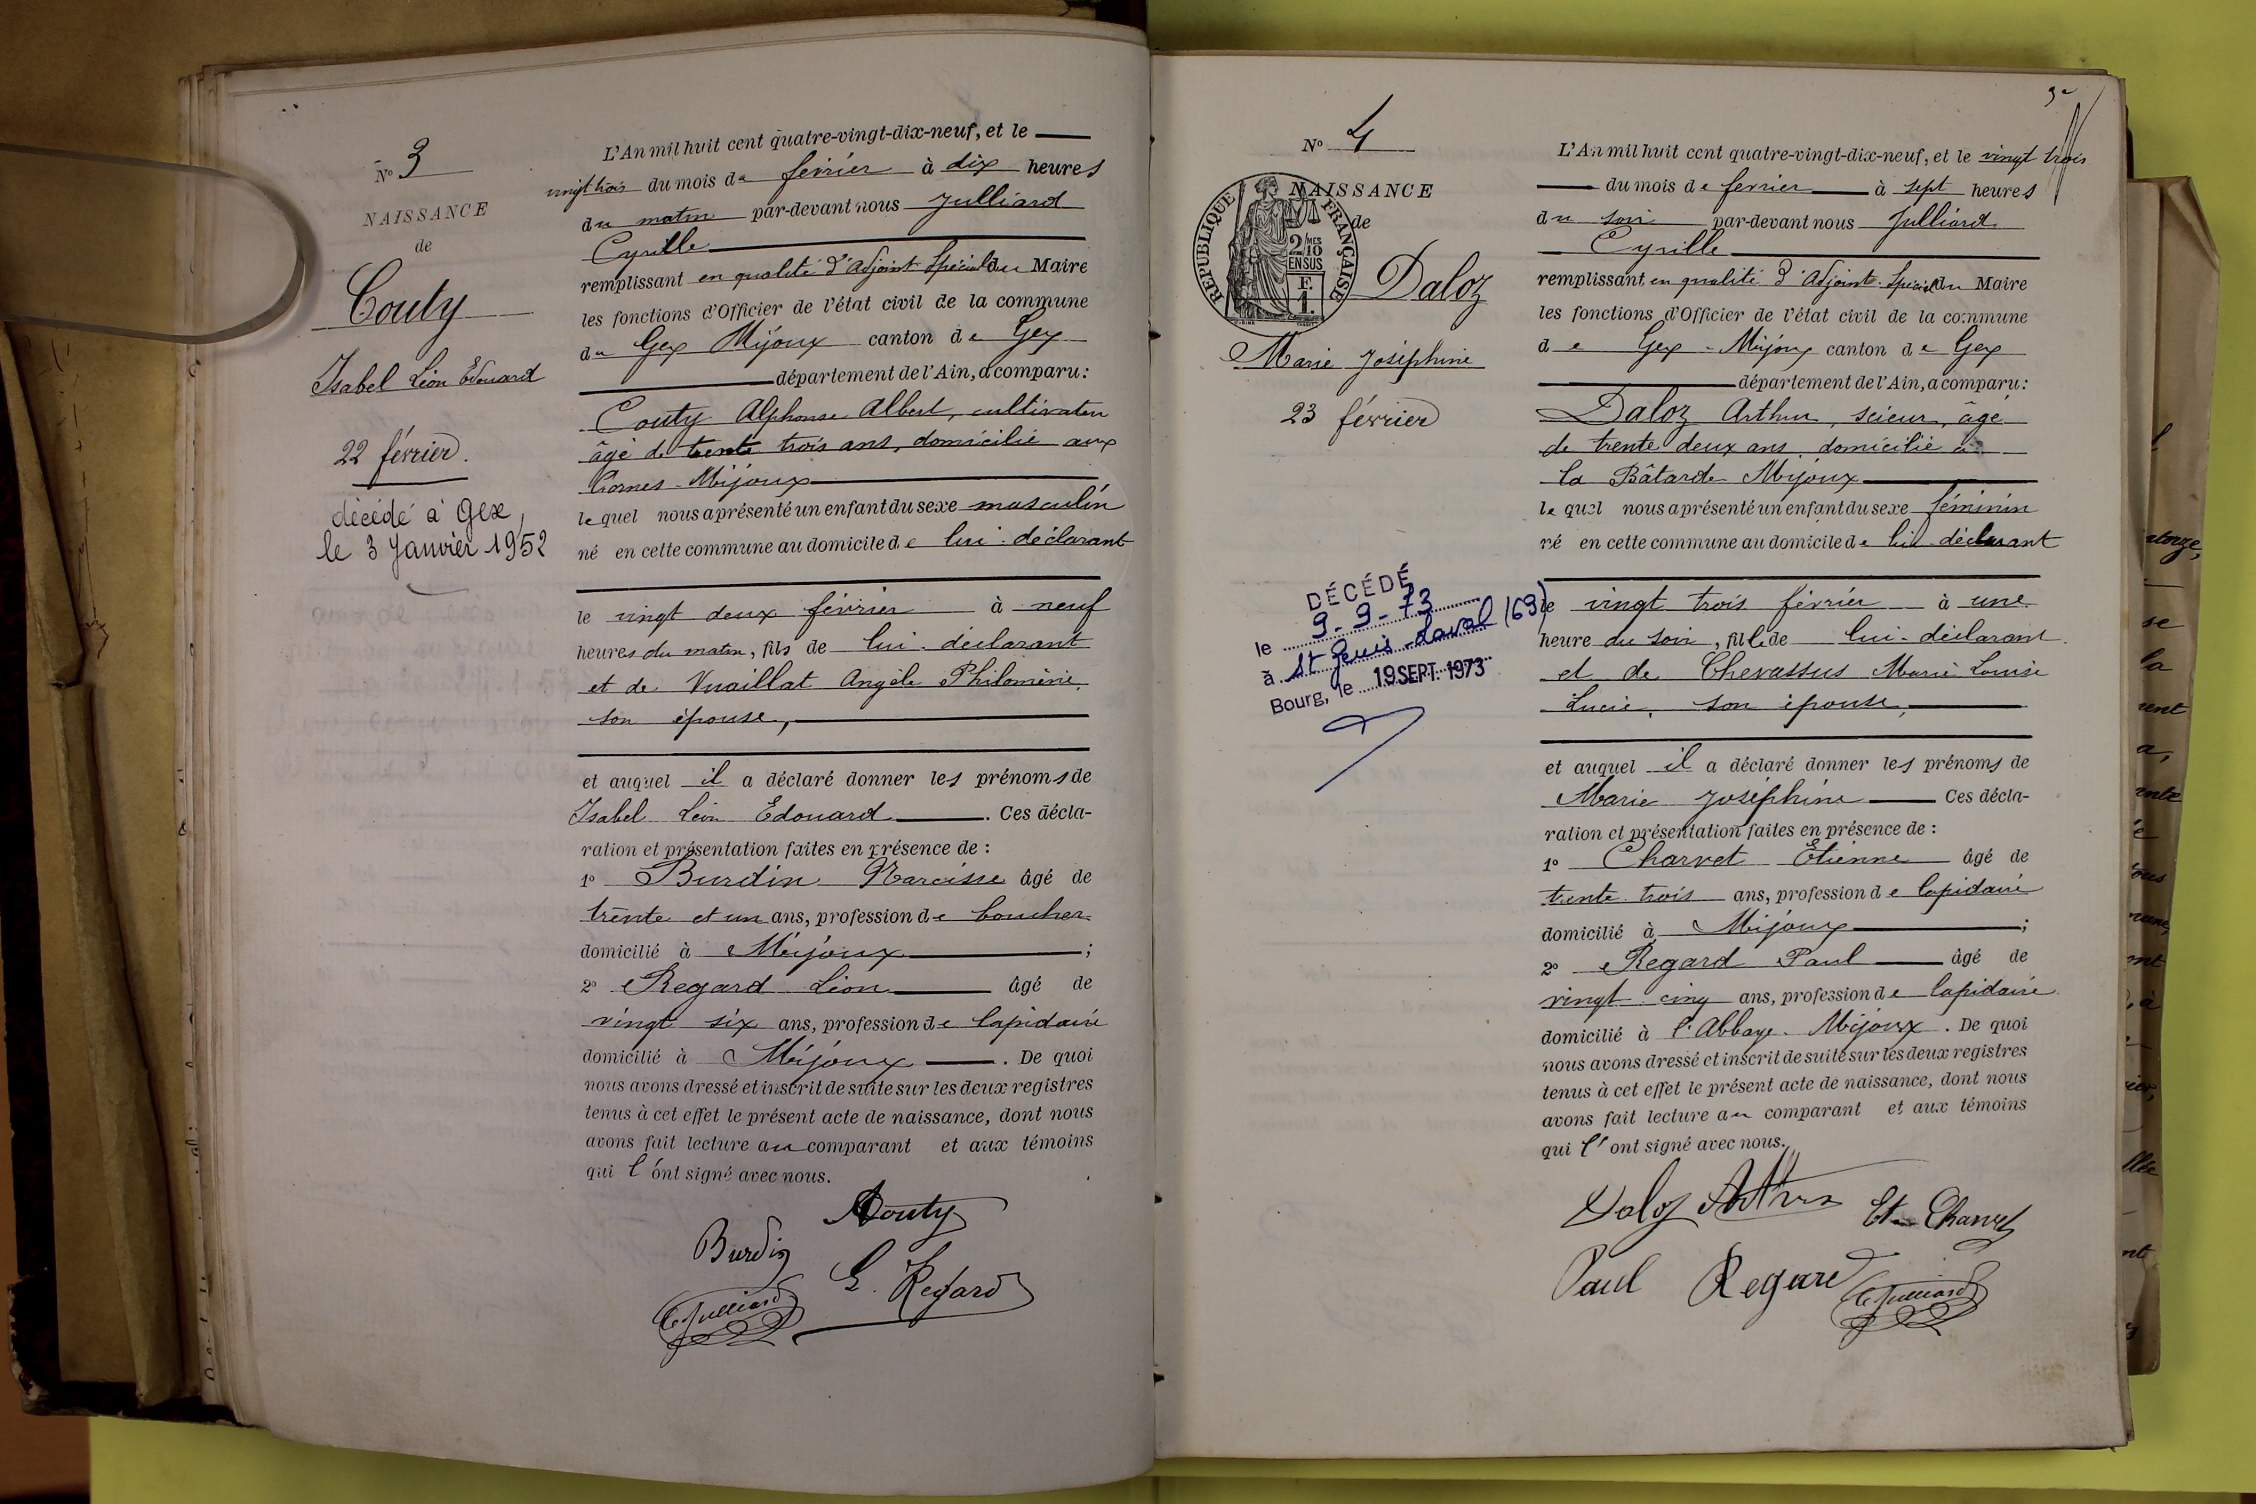 N° 3
NAISSANCE
de
Couty
Isabel Léon Edouard
22 février.
décédé à Gex,
le 3 Janvier 1952
L'An mil huit cent quatre-vingt-dix-neuf, et le
vingt trois du mois de février à dix heures
du matin par-devant nous Julliard
Cyrille
remplissant en qualité d'Adjoint Spécial du Maire
les fonctions d'Officier de l'état civil de la commune
de Gex Mijoux canton de Gex
département de l'Ain, a comparu:
Couty Alphonse Albert, cultivateur
âgé de trente trois ans, domicilié aux
Cornes-Mijoux
lequel nous a présenté un enfant du sexe masculin
né en cette commune au domicile de lui déclarant
le vingt deux février à neuf
heures du matin, fils de lui déclarant
et de Vuaillat Angèle Philomène,
son épouse,
et auquel il a déclaré donner les prénoms de
Isabel Léon Edouard. Ces décla-
ration et présentation faites en présence de :
1° Burdin Narcisse âgé de
trente et un ans, profession de boucher
domicilié à Mijoux ;
2° Regard Léon âgé de
vingt six ans, profession de lapidaire
domicilié à Mijoux. De quoi
nous avons dressé et inscrit de suite sur les deux registres
tenus à cet effet le présent acte de naissance, dont nous
avons fait lecture au comparant et aux témoins
qui l'ont signé avec nous.
ACouty
Burdin
L. Regard
C. Julliard
N° 4
NAISSANCE
de
RÉPUBLIQUE FRANÇAISE
2/10MES
EN SUS
F.
1.
Daloz
Marie Joséphine
23 février
DÉCÉDÉ
le 9-9-73
à St Genis-Laval (69)
Bourg, le 19 SEPT. 1973
L'An mil huit cent quatre-vingt-dix-neuf, et le vingt trois
du mois de février à sept heures
du soir par-devant nous Julliard
Cyrille
remplissant en qualité d'Adjoint Spécial du Maire
les fonctions d'Officier de l'état civil de la commune
de Gex-Mijoux canton de Gex
département de l'Ain, a comparu:
Daloz Arthur, scieur, âgé
de trente deux ans, domicilié à
la Bâtarde Mijoux
lequel nous a présenté un enfant du sexe féminin
né en cette commune au domicile de lui déclarant
le vingt trois février à une
heure du soir, fille de lui déclarant
et de Chevassus Marie Louise
Lucie, son épouse,
et auquel il a déclaré donner les prénoms de
Marie Joséphine Ces décla-
ration et présentation faites en présence de :
1° Charvet Etienne âgé de
trente trois ans, profession de lapidaire
domicilié à Mijoux ;
2° Regard Paul âgé de
vingt cinq ans, profession de lapidaire
domicilié à l'Abbaye-Mijoux. De quoi
nous avons dressé et inscrit de suite sur les deux registres
tenus à cet effet le présent acte de naissance, dont nous
avons fait lecture au comparant et aux témoins
qui l'ont signé avec nous.
Daloz Arthur Etne Charvet
Paul Regard C. Julliard